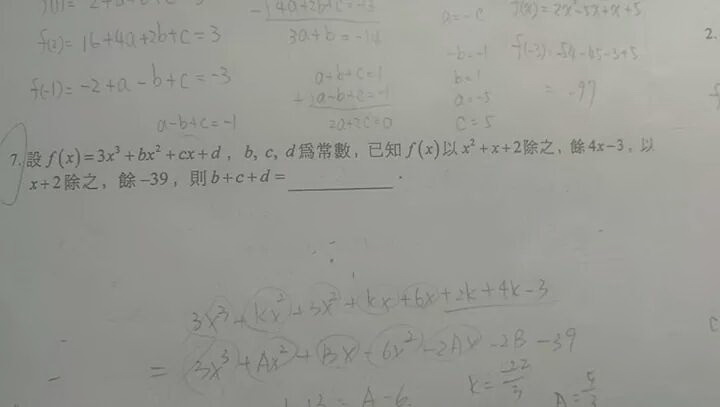 f(2)= 16+4a+2b+c=3
3a+b=-14
f(-1)= -2+a-b+c=-3
a-b+c=-1
2a+2c=0
a=-c
-b=-1
b=1
a=-5
c=5
f(x)=2x³-5x+x+5
f(-3)=-54-45-3+5
=-97
7. 設 f(x)=3x³+bx²+cx+d，b, c, d 爲常數，已知 f(x) 以 x²+x+2 除之，餘 4x-3，以
x+2 除之，餘 -39，則 b+c+d=____________．
3x³+kx²+3x²+kx+6x+2k+4x-3
= 3x³+Ax²+Bx-6x²-2Ax-2B-39
k=-22/3